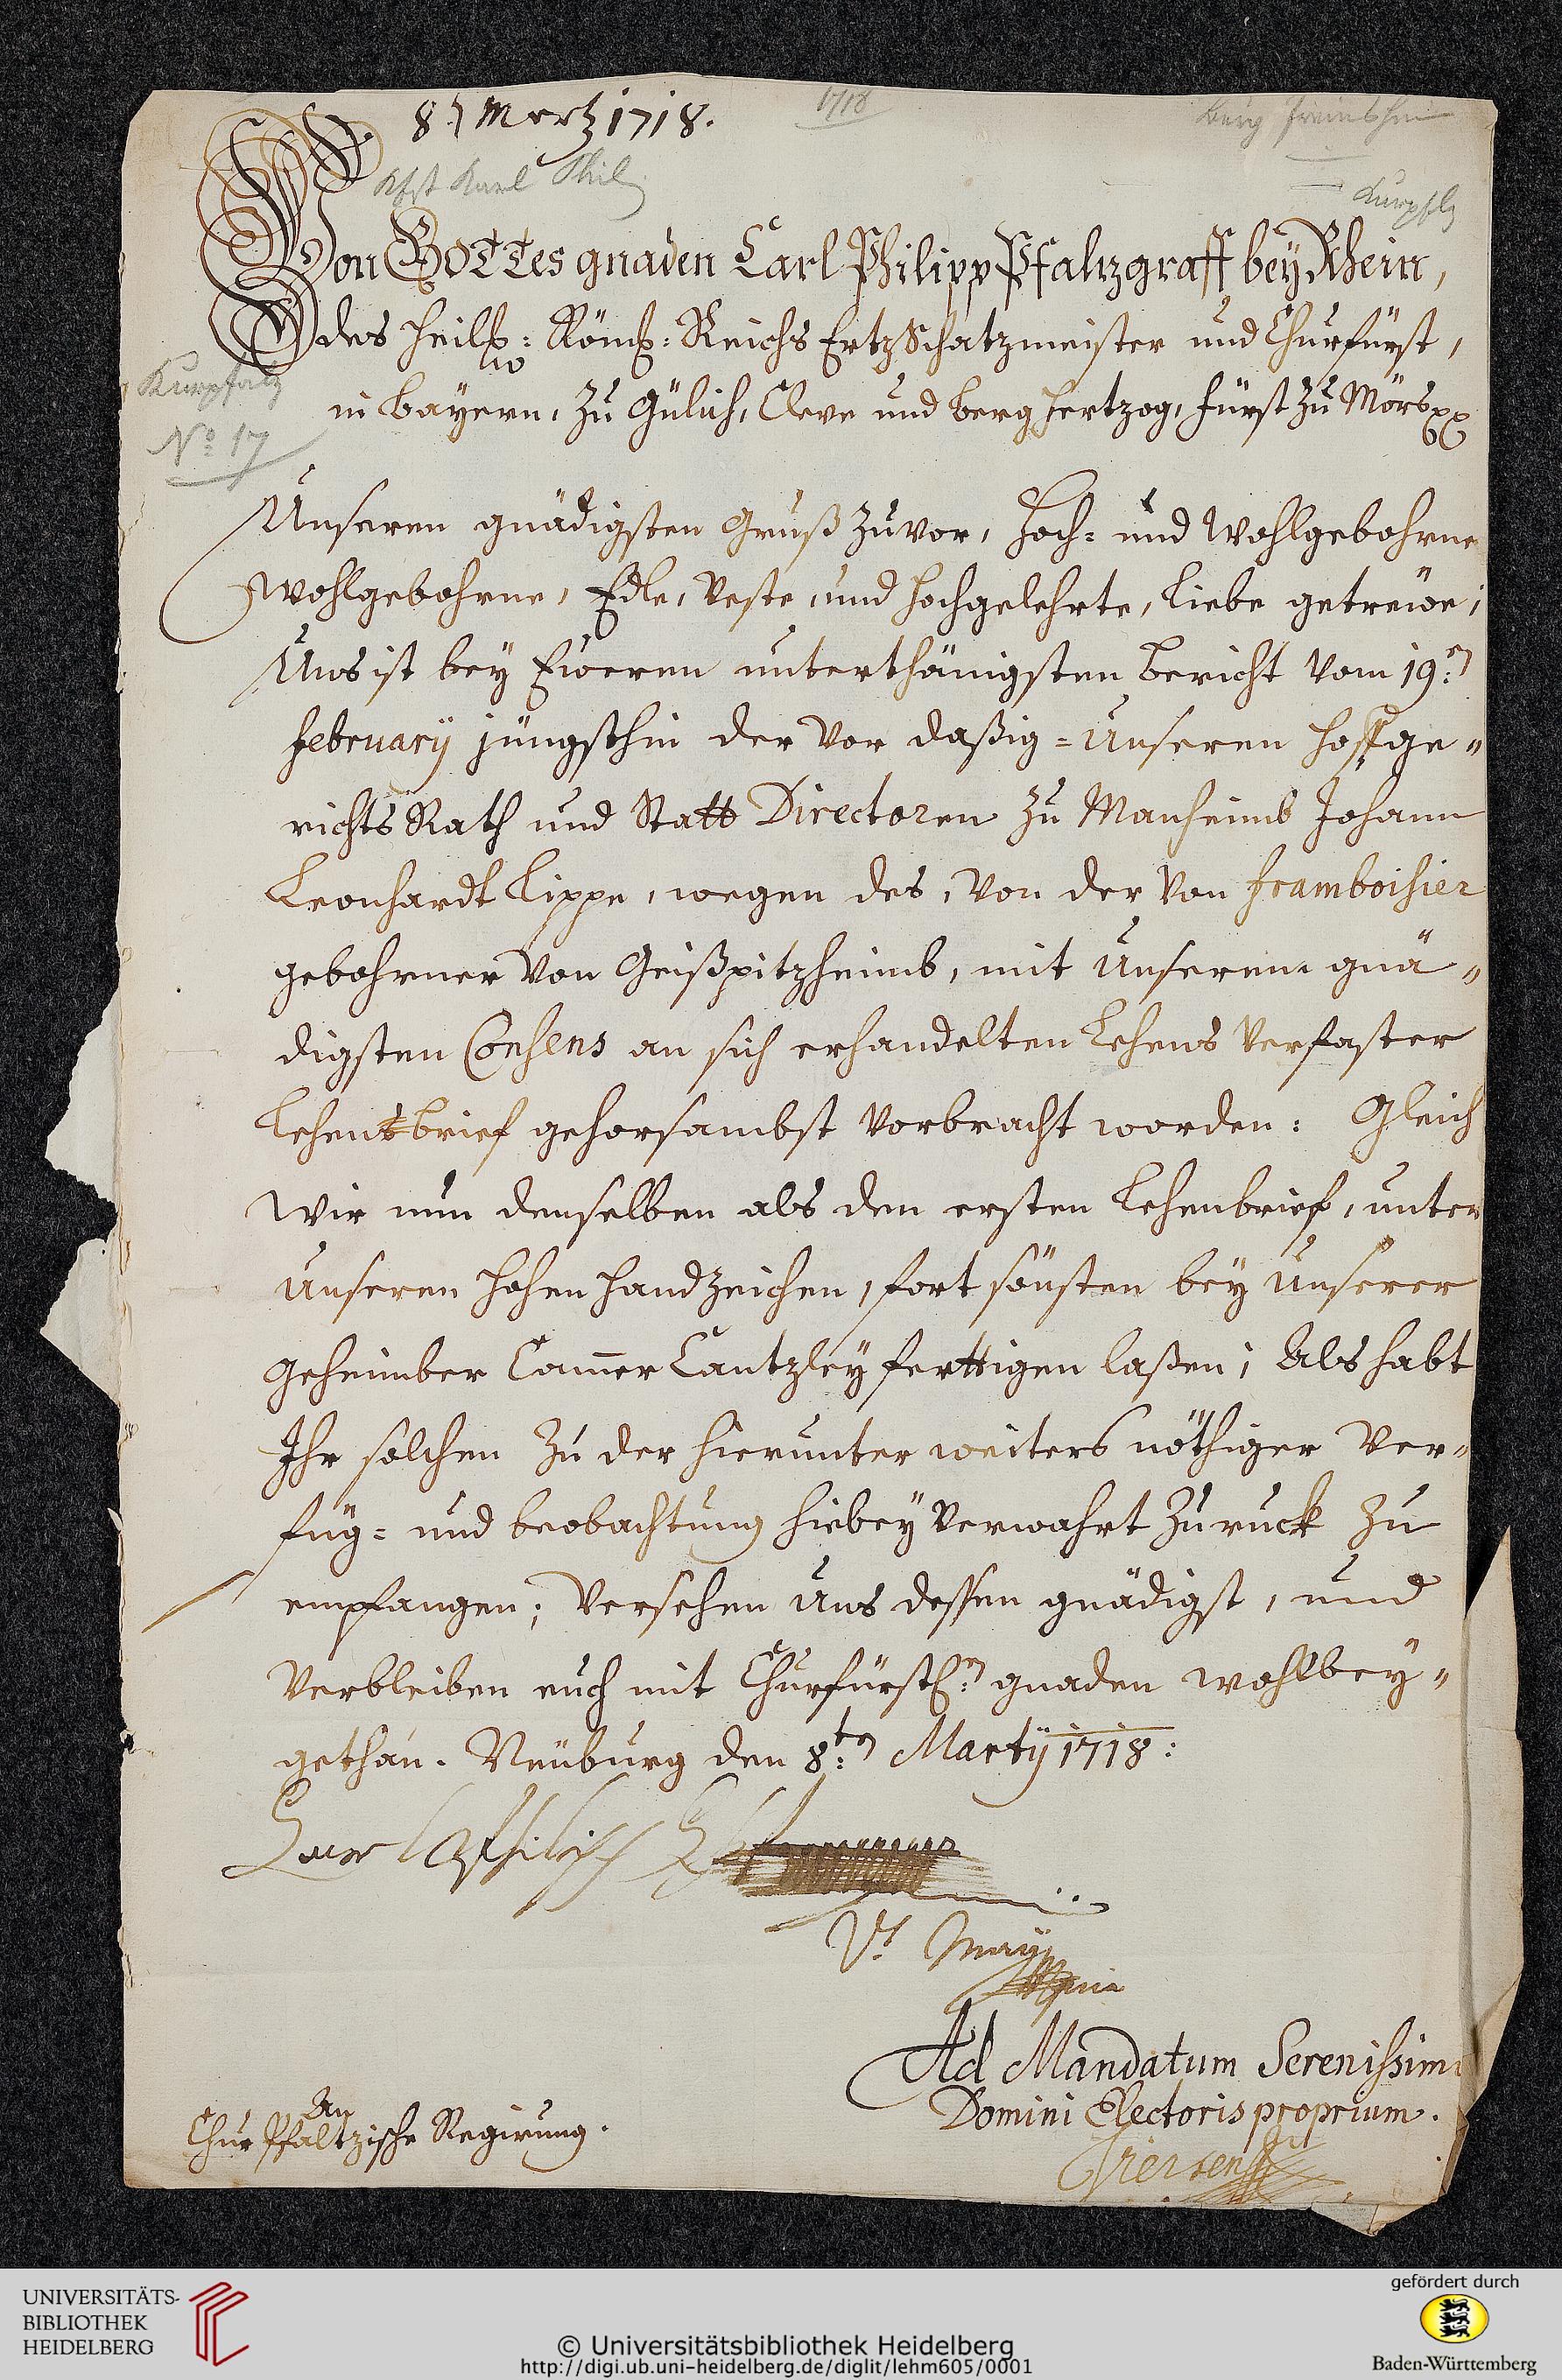 8 Mertz 1718.
1718
Burg Freinsheim
Kfst Karl Phil
Kurpflz
Von GOTTes gnaden Carl Philipp Pfaltzgraff bey Rhein,
des heil: Röm: Reichs ErtzSchatzmeister und Churfürst,
Kurpfalz
in Bayern, zu Gülich, Cleve und Berg Hertzog, Fürst zu Mörs
No 17
Unseren gnädigsten Gruß zuvor, Hoch- und Wohlgebohrne
Wohlgebohrne, Edle, Veste, und hochgelehrte, Liebe getrewe;
Uns ist bey Eweren unterthänigsten Bericht vom 19:
February jüngsthin der vor daßig-Unseren Hoffge-
richts Rath und Statt Directoren zu Manheimb Johann
Leonhardt Lippe, wegen des, von der von Framboisier
gebohrner von Geißpitzheimb, mit Unserem gnä-
digsten Consens an sich erhandelten Lehens verfaster
Lehenbrief gehorsambst vorbracht worden: Gleich
Wir nun denselben als den ersten Lehenbrief, unter
Unseren hohen handzeichen, fort sönsten bey Unserer
geheimber Cammer Cantzley ferttigen laßen; Als habt
Ihr solchen zu der hierunter weiters nöthiger Ver-
füg- und beobachtung hiebey verwahrt zuruck zu
empfangen; Versehen Uns dessen gnädigst, und
Verbleiben euch mit Churfürstl: gnaden wohlbey-
gethan. Neüburg den 8:ten Martij 1718:
Carl Philipp
Vt May
Ad Mandatum Serenissimi
Domini Electoris proprium.
An
Chur Pfaltzische Regirung.
UNIVERSITÄTS-
BIBLIOTHEK
HEIDELBERG
© Universitätsbibliothek Heidelberg
http://digi.ub.uni-heidelberg.de/diglit/lehm605/0001
gefördert durch
Baden-Württemberg